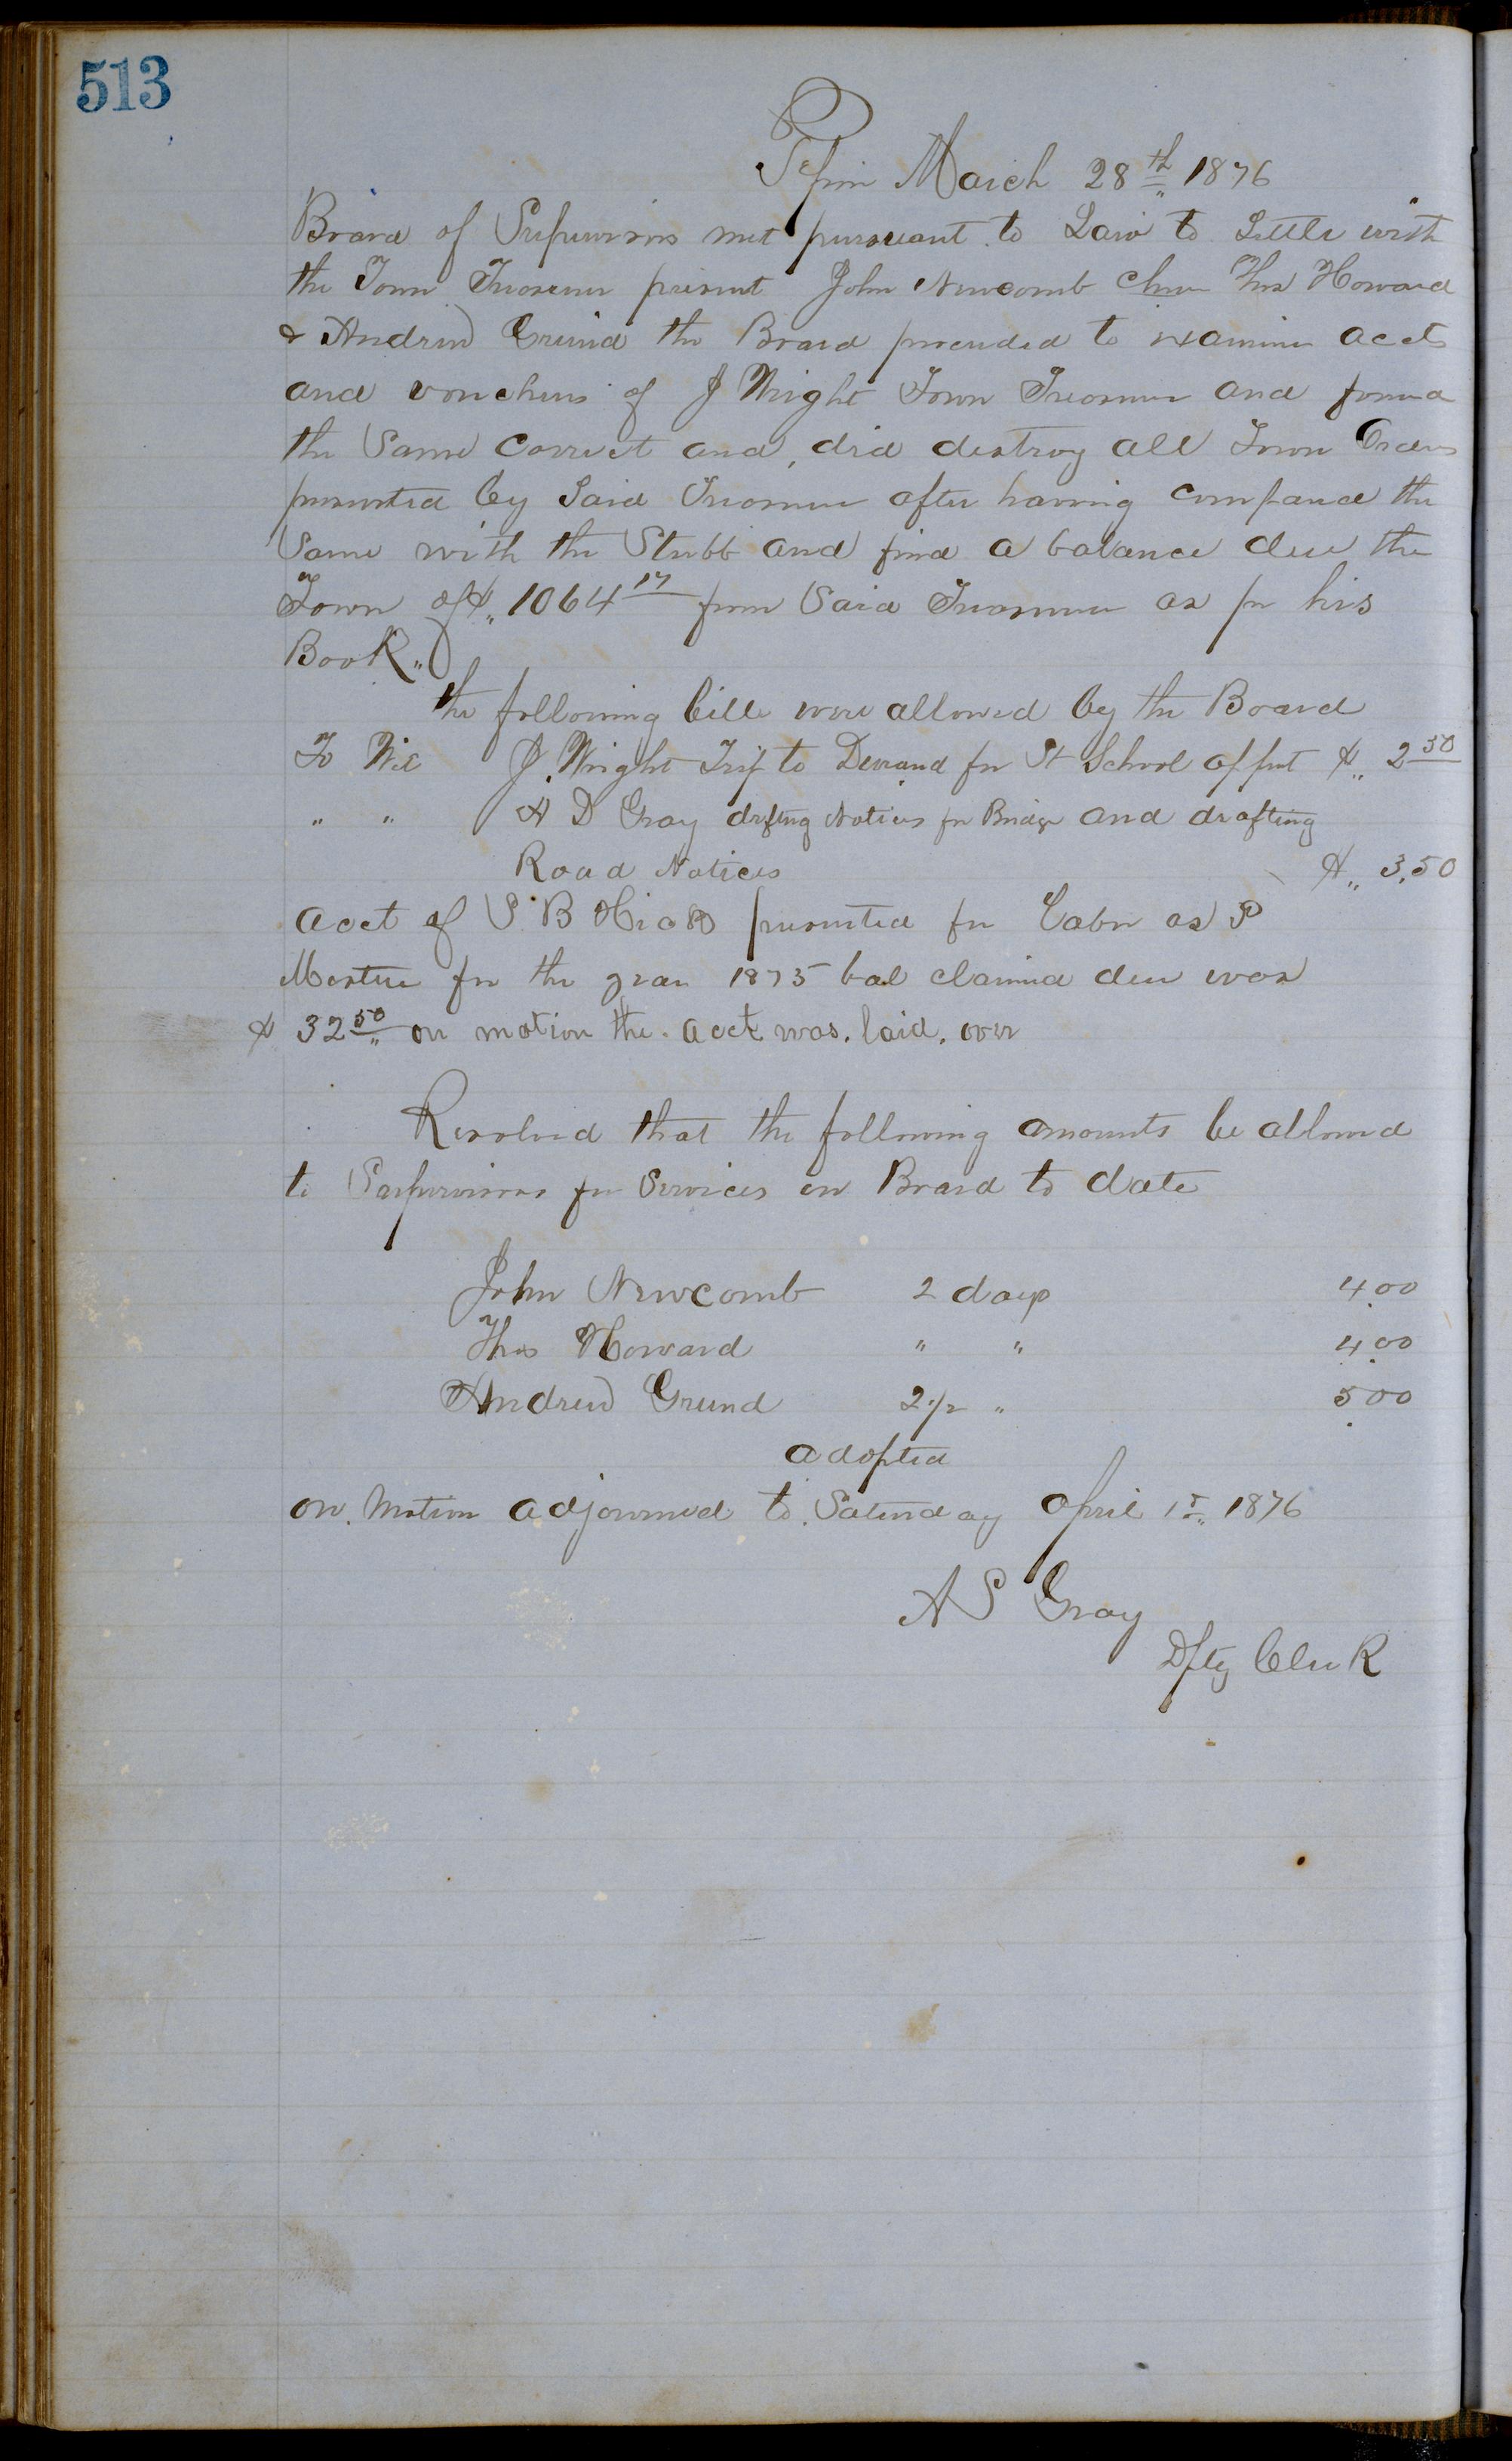 513
Pepin March 28th 1876
Board of Supervisors met pursuant to Law to Settle with
the Town Treasurer present John Newcomb Chmn Thos Howard
& Andrew Grund the Board proceeded to examine accts
and vouchers of J Wright Town Treasurer and found
the Same Correct and, did destroy all Town Orders
presented by Said Treasurer after having compared the
Same with the Stubb and find a balance due the
Town of $ 1064 17 from Said Treasurer as per his
Book "
the following bills were allowed by the Board
To Wit J. Wright Trip to Durand for St School appt $ 2 50
" " A D Gray drfting Notices for Bridge and drafting
Road Notices $ 3.50
acct of S. B Hicks presented for Labor as P
Master for the year 1875 bal claimed due was
$ 32 50 on motion the acct was. laid. over
Resolved that the following amounts be allowed
to Supervisors for Services on Board to date
John Newcomb 2 days 4.00
Thos Howard " " 4.00
Andrew Grund 2 1/2 " 5.00
adopted
on. Motion adjourned to Saturday April 1st 1876
A S Gray
Dpty Clerk